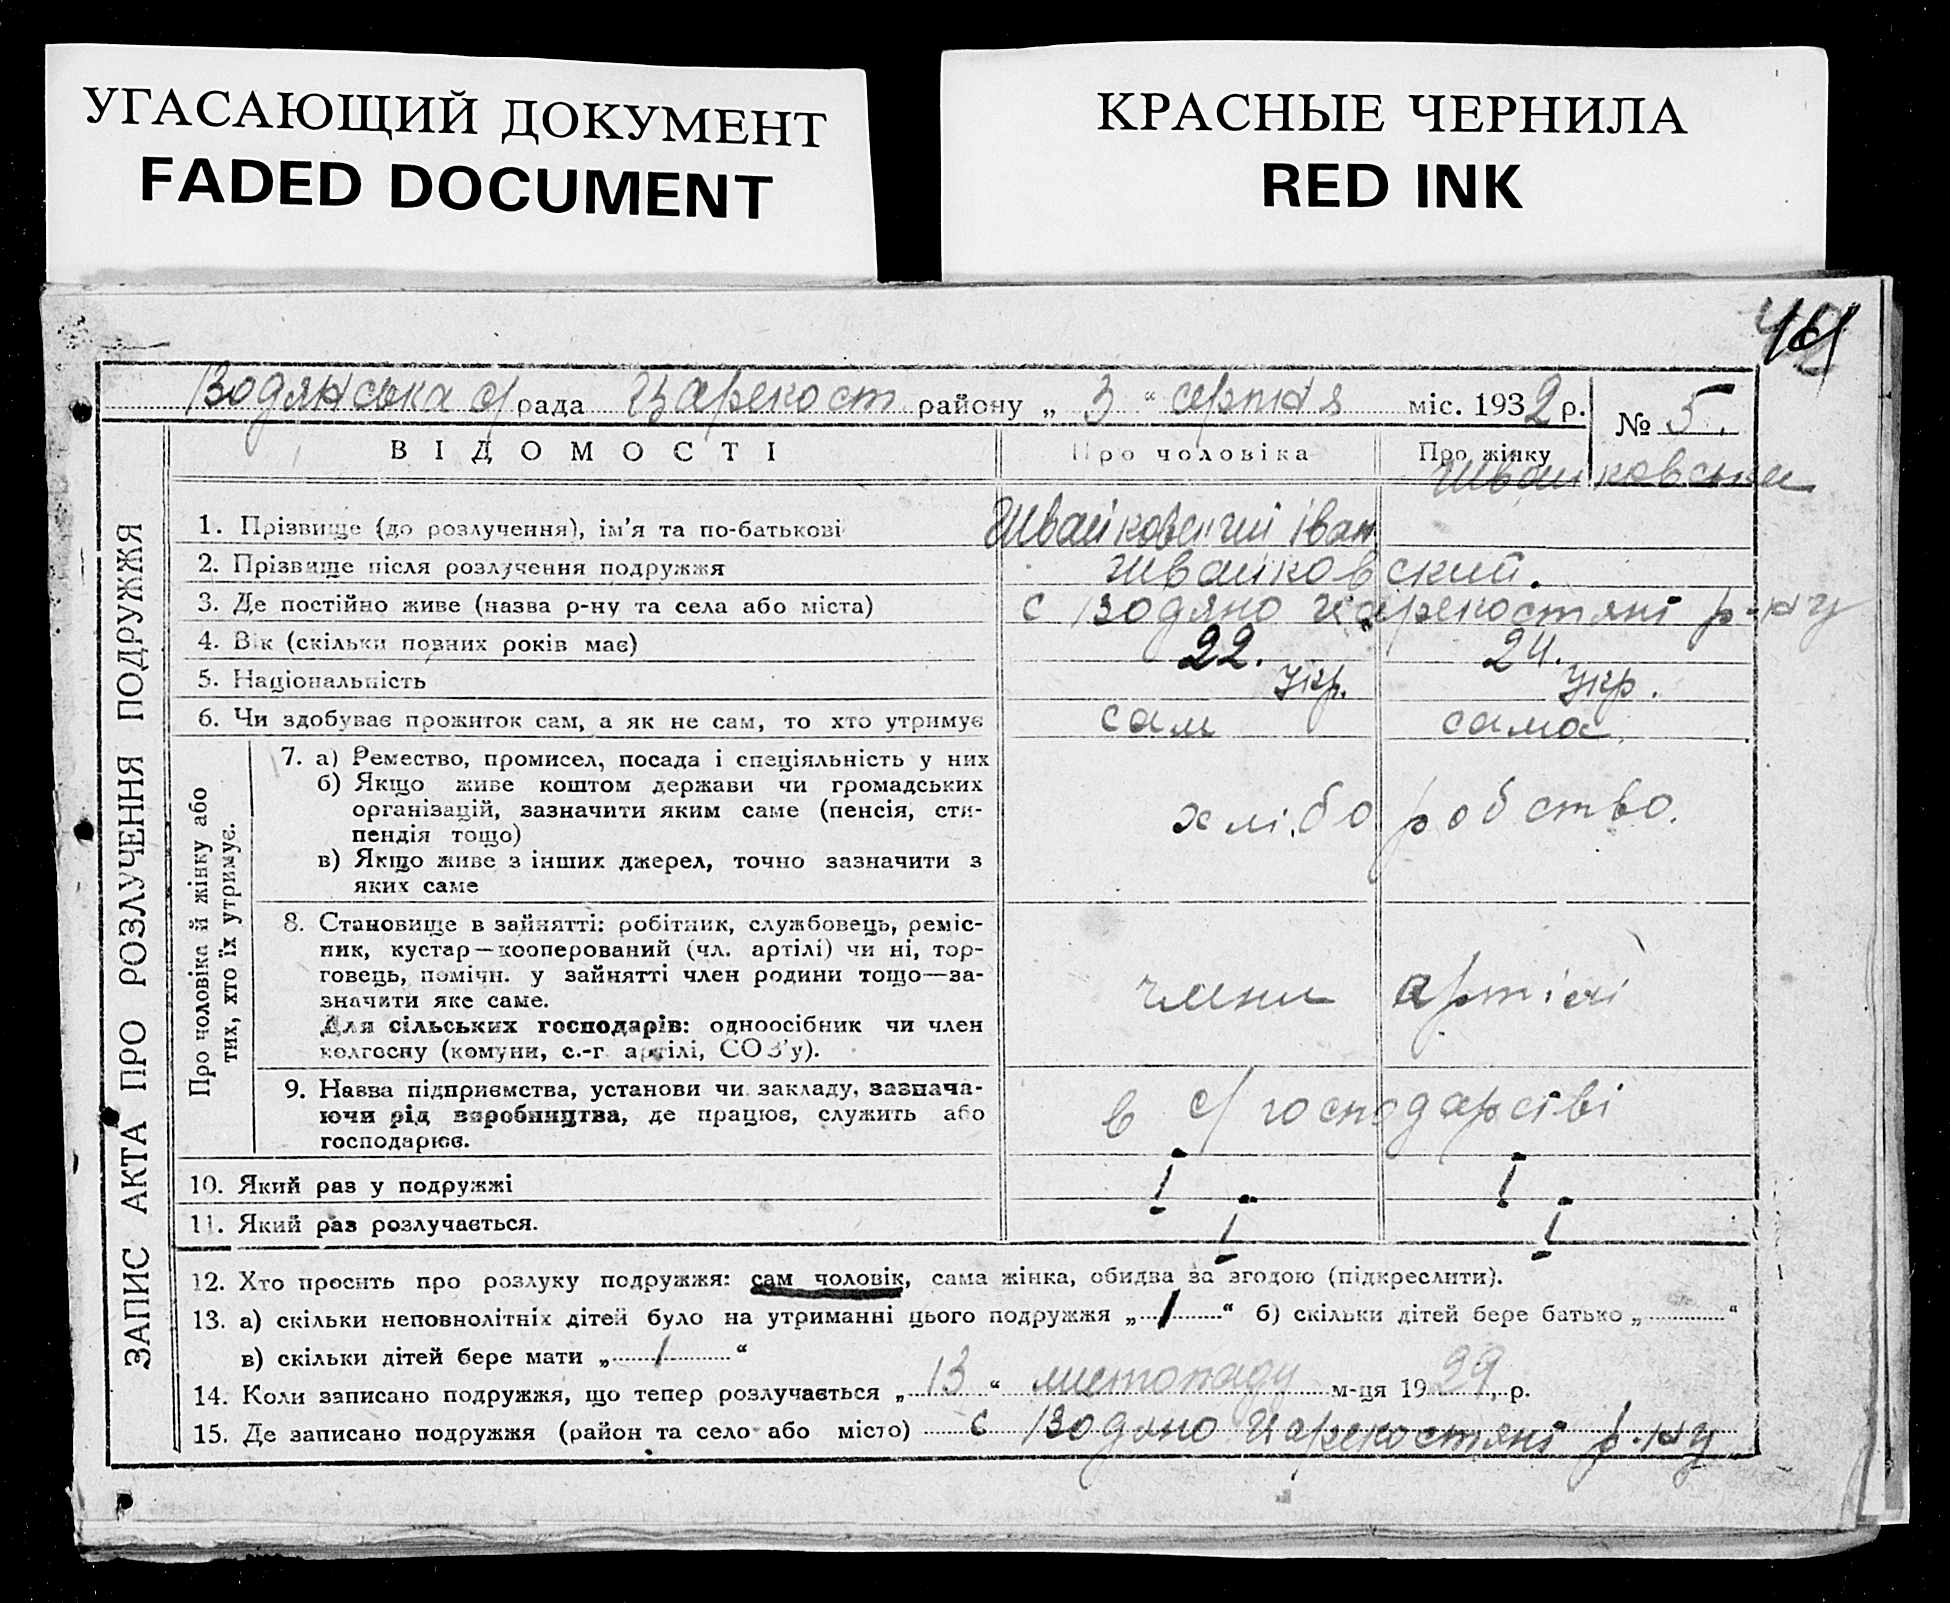 УГАСАЮЩИЙ ДОКУМЕНТ
FADED DOCUMENT
КРАСНЫЕ ЧЕРНИЛА
RED INK
Водянська с/рада Царекост. району „ 3 “ серпня міс. 1932 р.
№ 5.
ЗАПИС АКТА ПРО РОЗЛУЧЕННЯ ПОДРУЖЖЯ
ВІДОМОСТІ
Про чоловіка
Про жінку
1. Прізвище (до розлучення), ім'я та по-батькові Швайковский Іван Швайковська
2. Прізвище після розлучення подружжя Швайковский.
3. Де постійно живе (назва р-ну та села або міста) с Водяно Царекостяні р-ну
4. Вік (скільки повних років має) 22. 24.
5. Національність Укр. Укр.
6. Чи здобуває прожиток сам, а як не сам, то хто утримує сам сама
Про чоловіка й жінку або
тих, хто їх утримує.
7. а) Ремество, промисел, посада і спеціяльність у них
б) Якщо живе коштом держави чи громадських
організацій, зазначити яким саме (пенсія, сти-
пендія тощо)
в) Якщо живе з інших джерел, точно зазначити з
яких саме
хліборобство.
8. Становище в зайнятті: робітник, службовець, реміс-
ник, кустар—кооперований (чл. артілі) чи ні, тор-
говець, помічн. у зайнятті член родини тощо—за-
значити яке саме.
Для сільських господарів: одноосібник чи член
колгоспу (комуни, с.-г. артілі, СОЗ'у).
члени артілі
9. Назва підприємства, установи чи закладу, зазнача-
ючи рід виробництва, де працює, служить або
господарює.
в с/господарстві
10. Який раз у подружжі I I
11. Який раз розлучається. I I
12. Хто просить про розлуку подружжя: сам чоловік, сама жінка, обидва за згодою (підкреслити).
13. а) скільки неповнолітніх дітей було на утриманні цього подружжя „ 1 “ б) скільки дітей бере батько „ “
в) скільки дітей бере мати „ 1 “
14. Коли записано подружжя, що тепер розлучається „ 13 “ листопаду м-ця 1929, р.
15. Де записано подружжя (район та село або місто) с Водяно Царекостяні р-ну